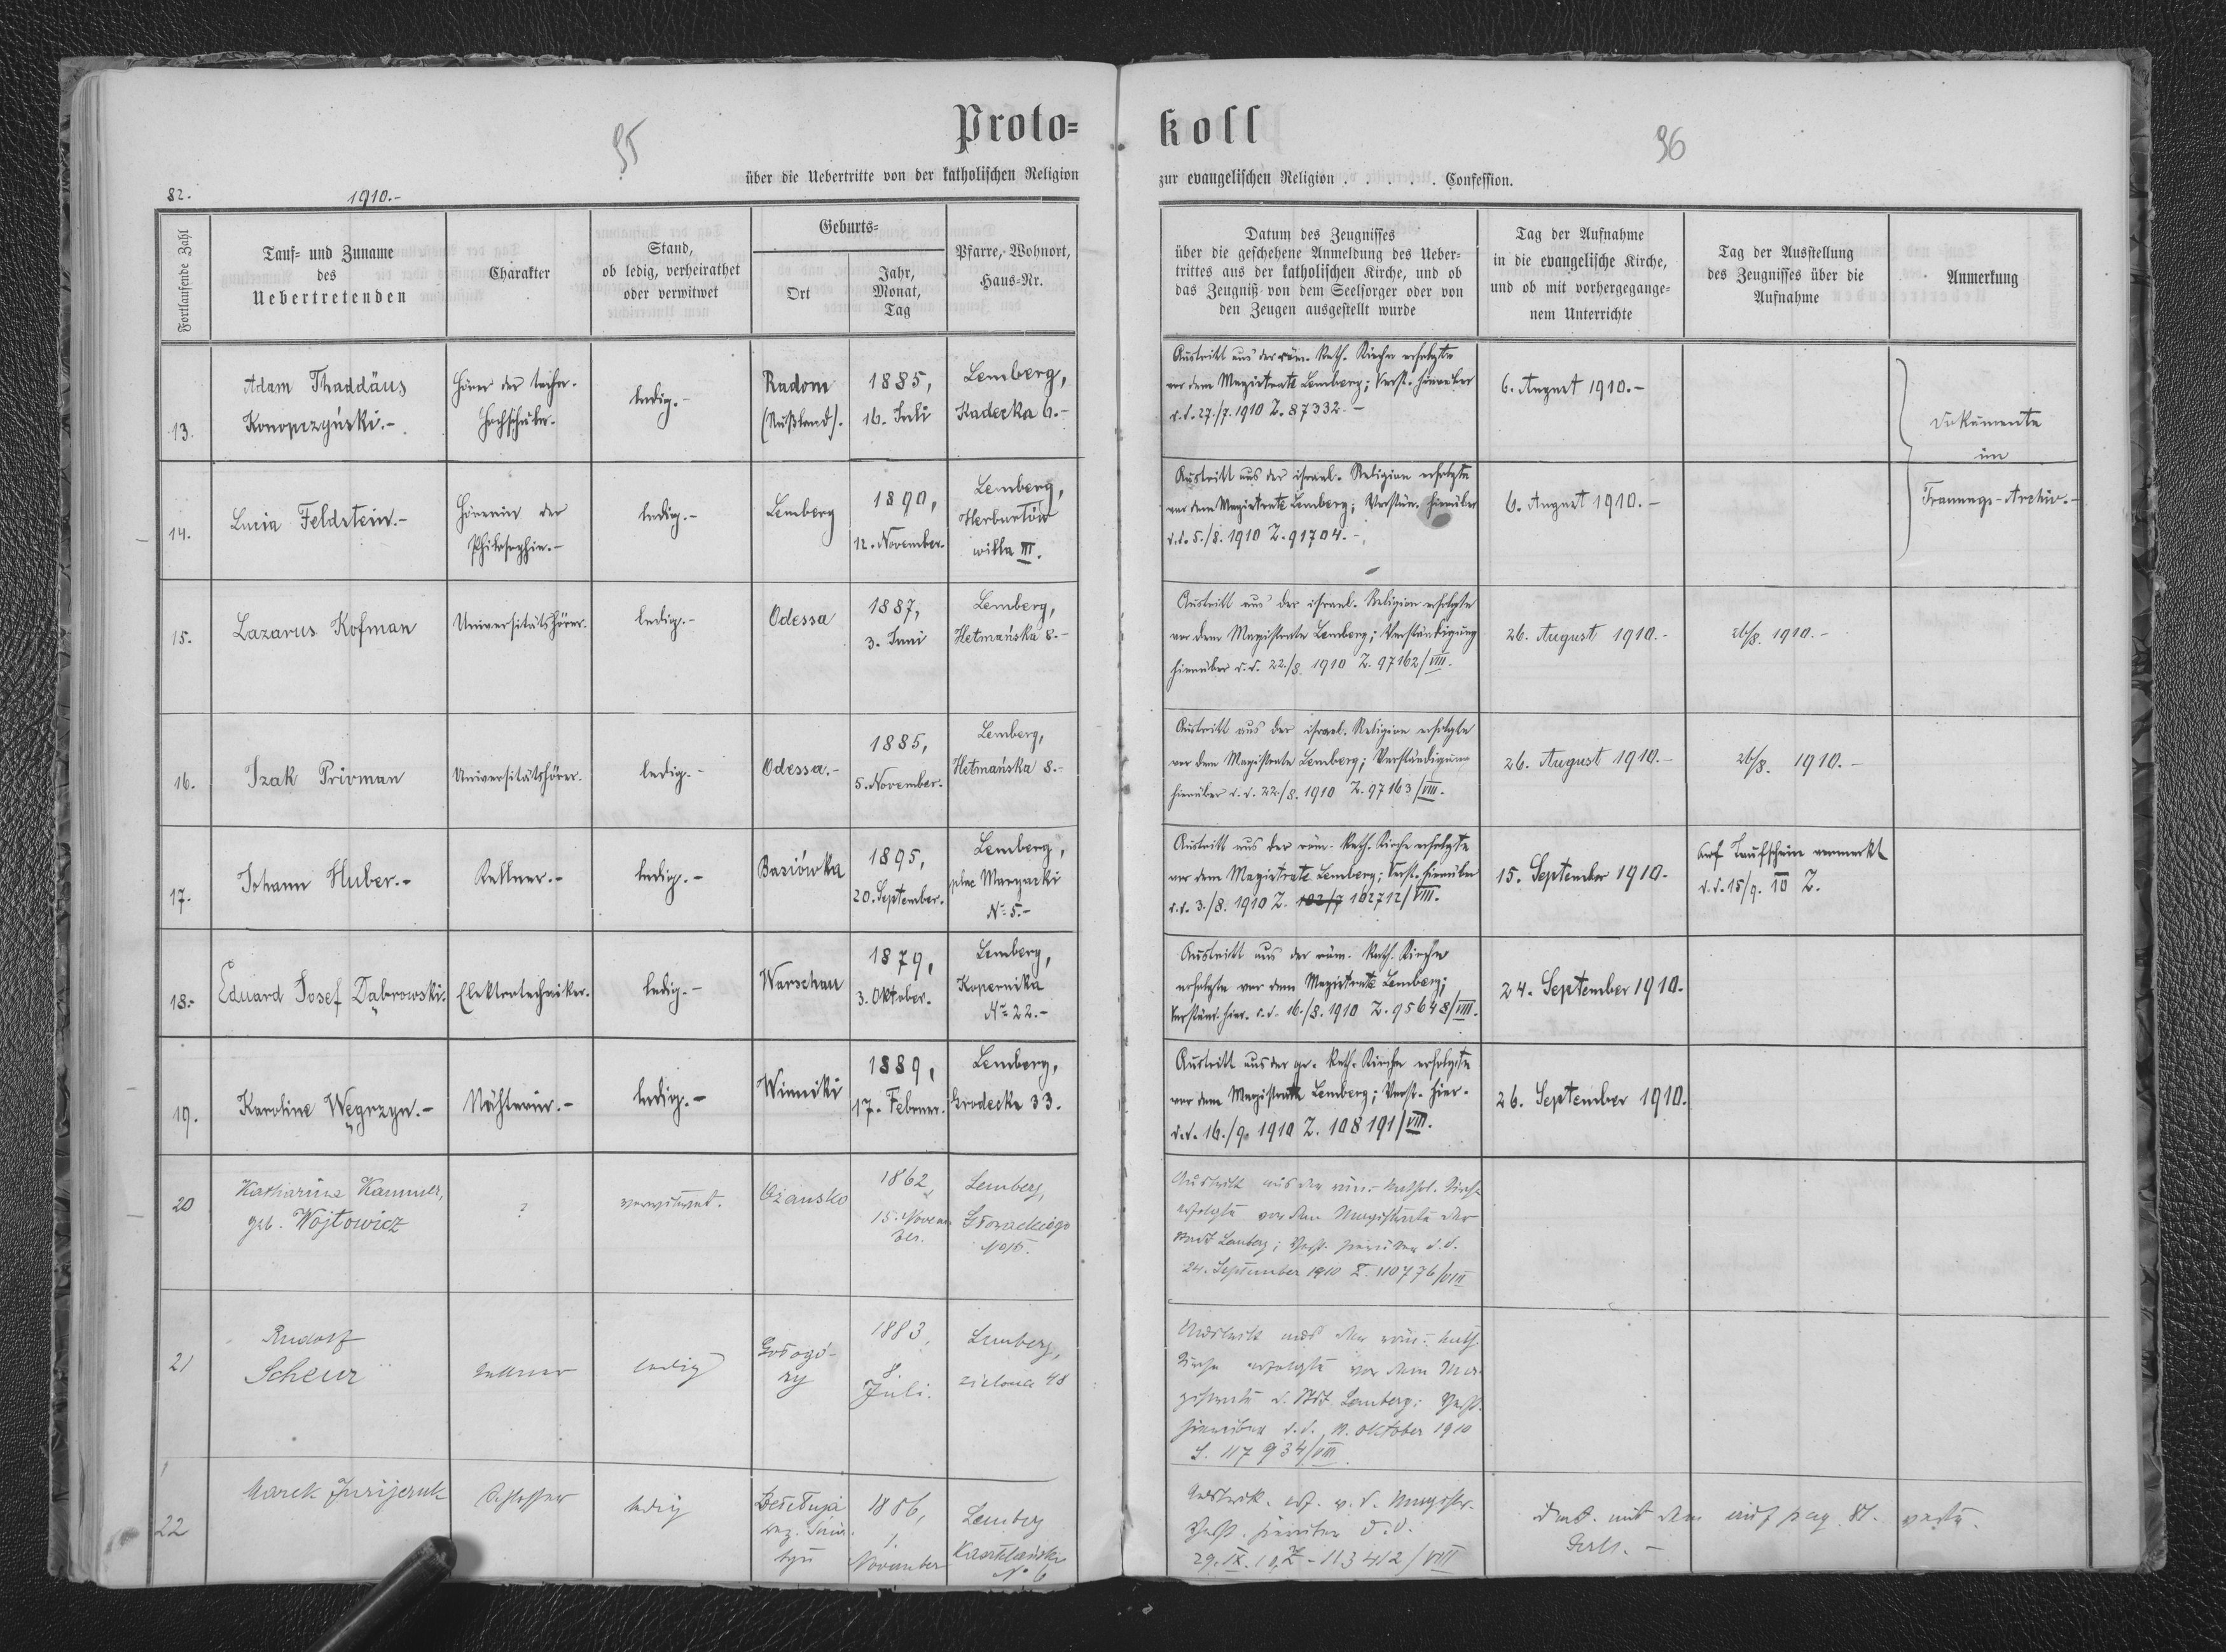 95
Proto=
koll
96
über die Uebertritte von der katholischen Religion
zur evangelischen Religion . . . . . . Confession.
82.
1910.-
Fortlaufende Zahl
Tauf- und Zuname
des
Uebertretenden
Charakter
Stand,
ob ledig, verheirathet
oder verwitwet
Geburts-
Ort
Jahr,
Monat,
Tag
Pfarre, Wohnort,
Haus-Nr.
Datum des Zeugnisses
über die geschehene Anmeldung des Ueber-
trittes aus der katholischen Kirche, und ob
das Zeugniß von dem Seelsorger oder von
den Zeugen ausgestellt wurde
Tag der Aufnahme
in die evangelische Kirche,
und ob mit vorhergegange-
nem Unterrichte
Tag der Ausstellung
des Zeugnisses über die
Aufnahme
Anmerkung
13.
Adam Thaddäus
Konopczyński.-
Hörer der techn.
Hochschule.-
ledig.-
Radom
(Rußland).
1885,
16. Juli
Lemberg,
Kadecka 6.-
Austritt aus der röm. Kath. Kirche erfolgte
vor dem Magistrate Lemberg; Verst. hierüber
d.d. 27./7. 1910 Z. 87332.-
6. August 1910.-
Dokumente
im
Trauungs-Archiv.-
14.
Lucia Feldstein.-
Hörerin der
Philosophie.-
ledig.-
Lemberg
1890,
12. November.
Lemberg,
Herburtów
willa III.
Austritt aus der israel. Religion erfolgte
vor dem Magistrate Lemberg; Verstän. hierüber
d.d. 5./8. 1910 Z. 91704.-
6. August 1910.-
15.
Lazarus Kofman
Universitätshörer.
ledig.-
Odessa
1887,
3. Juni
Lemberg,
Hetmańska 8.-
Austritt aus der israel. Religion erfolgte
vor dem Magistrate Lemberg; Verständigung
hierüber d.d. 22./8. 1910 Z. 97162/VIII.
26. August 1910.-
26/8. 1910.-
16.
Izak Privman
Universitätshörer.
ledig.-
Odessa.-
1885,
5. November.
Lemberg,
Hetmańska 8.-
Austritt aus der israel. Religion erfolgte
vor dem Magistrate Lemberg; Verständigung
hierüber d.d. 22./8. 1910 Z. 97163/VIII.
26. August 1910.-
26/8. 1910.-
17.
Johann Huber.-
Kellner.-
ledig.-
Basiówka
1895,
20. September.
Lemberg,
plac Maryacki
No 5.-
Austritt aus der röm. Kath. Kirche erfolgte
vor dem Magistrate Lemberg; Verst. hierüber
d.d. 3./8. 1910 Z. 102/7 102712/VIII.
15. September 1910.
Auf Taufschein vermerkt
d.d. 15/9. 10 Z.
18.
Eduard Josef Dąbrowski.
Elektrotechniker.
ledig.-
Warschau
1879,
3. Oktober.
Lemberg,
Kopernika
No 22.-
Austritt aus der röm. Kath. Kirche
erfolgte vor dem Magistrate Lemberg;
Verständ. hier. d.d. 16./8. 1910 Z. 95648/VIII.
24. September 1910.
19.
Karoline Węgrzyn.-
Nähterin.-
ledig.-
Winniki
1889,
17. Februar.
Lemberg,
Grodecka 33.
Austritt aus der gr. Kath. Kirche erfolgte
vor dem Magistrate Lemberg; Verst. hier.
d.d. 16./9. 1910 Z. 108191/VIII.
26. September 1910.
20
Katharina Kammer,
geb. Wojtowicz
?
verwitwet.
Ożansko
1862
15. Novem
ber.
Lemberg,
Głowackiego
Austritt aus der röm. kathol. Kirche
erfolgte vor dem Magistrate der
Stadt Lemberg; Verst. hierüber d.d.
24. September 1910 Z. 110776/VIII
21
Rudolf
Scheur
Kellner
ledig
Gołogó-
ry
1883,
8.
Juli.
Lemberg,
zielona 48
Austritt aus der röm. kath.
Kirche erfolgte vor dem Ma-
gistrate d. Stdt. Lemberg; Verst.
hierüber d.d. 11. Oktober 1910
Z. 117934/VIII.
22
Marek Jurijczuk
Schlosser
ledig
Bełełuja
1886,
1.
November
Lemberg
No 6
Austritt. erf. v. d. Magistr.
Verst. hierüber d.d.
29. IX. 10, Z-113412/VIII
mit dem auf pag. 81.